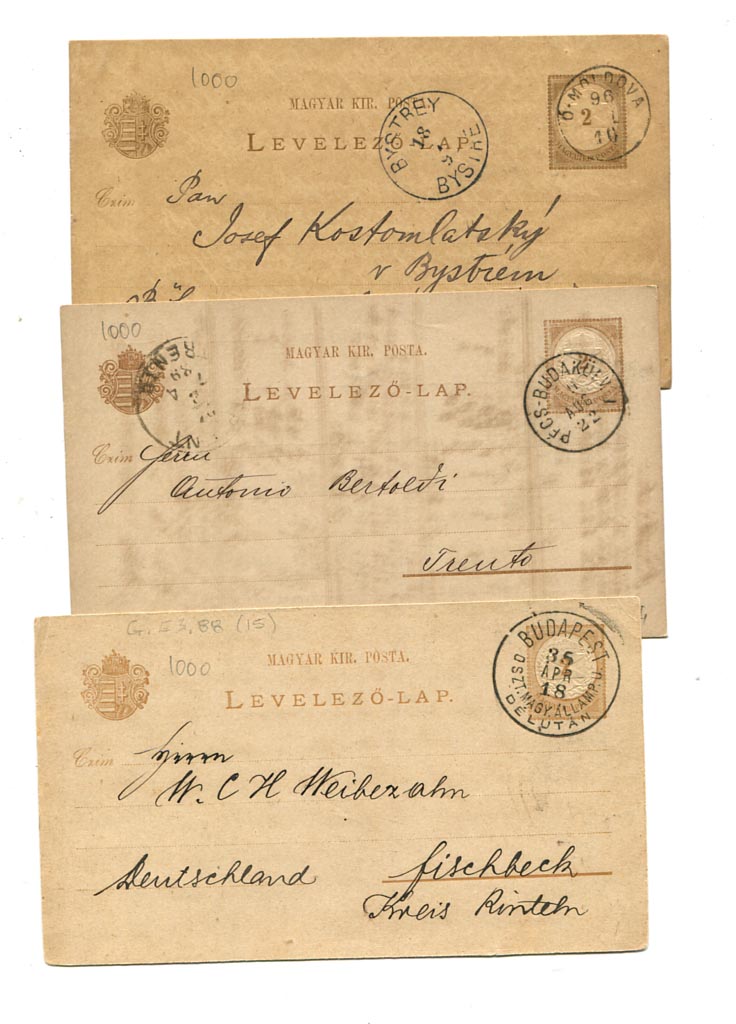 1000
MAGYAR KIR. POSTA.
LEVELEZŐ-LAP.
BYSTREY
18
BYSTRÉ
Ó-MOLDOVA
96
2 1
10
Czim
Pan
Josef Kostomlatský
v Bystrém
1000
MAGYAR KIR. POSTA.
LEVELEZŐ-LAP.
89
PÉCS-BUDA
AUG
22
Czim
Herrn
Antonio Bertoldi
Trento
G. E3.88 (15)
1000
MAGYAR KIR. POSTA.
LEVELEZŐ-LAP.
BUDAPEST
35
APR
18
OSZT. MAGY. ÁLLAMP. U.
DÉLUTÁN
Czim
Herrn
W. C H Weibezahn
Deutschland fischbeck
Kreis Rinteln